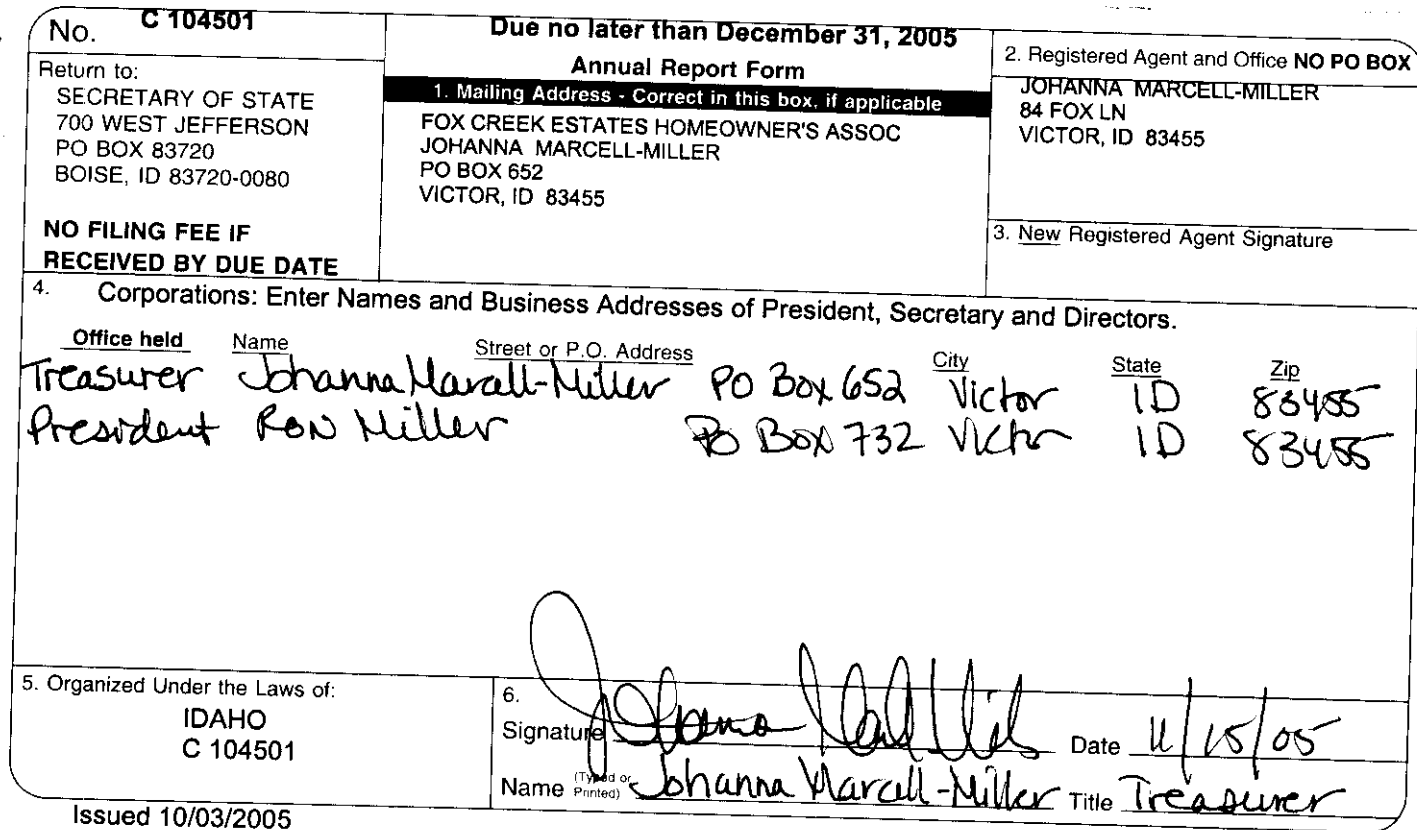 No. C 104501
Return to:
SECRETARY OF STATE
700 WEST JEFFERSON
PO BOX 83720
BOISE, ID 83720-0080
NO FILING FEE IF
RECEIVED BY DUE DATE
Due no later than December 31, 2005
Annual Report Form
1. Mailing Address - Correct in this box, if applicable
FOX CREEK ESTATES HOMEOWNER'S ASSOC
JOHANNA MARCELL-MILLER
PO BOX 652
VICTOR, ID 83455
2. Registered Agent and Office NO PO BOX
JOHANNA MARCELL-MILLER
84 FOX LN
VICTOR, ID 83455
3. New Registered Agent Signature
4. Corporations: Enter Names and Business Addresses of President, Secretary and Directors.
Office held Name Street or P.O. Address City State Zip
Treasurer Johanna Marcell-Miller PO Box 652 Victor ID 83455
President Ron Miller PO Box 732 Victor ID 83455
5. Organized Under the Laws of:
IDAHO
C 104501
6.
Signature Date 11/15/05
Name (Typed or Printed) Johanna Marcell-Miller Title Treasurer
Issued 10/03/2005